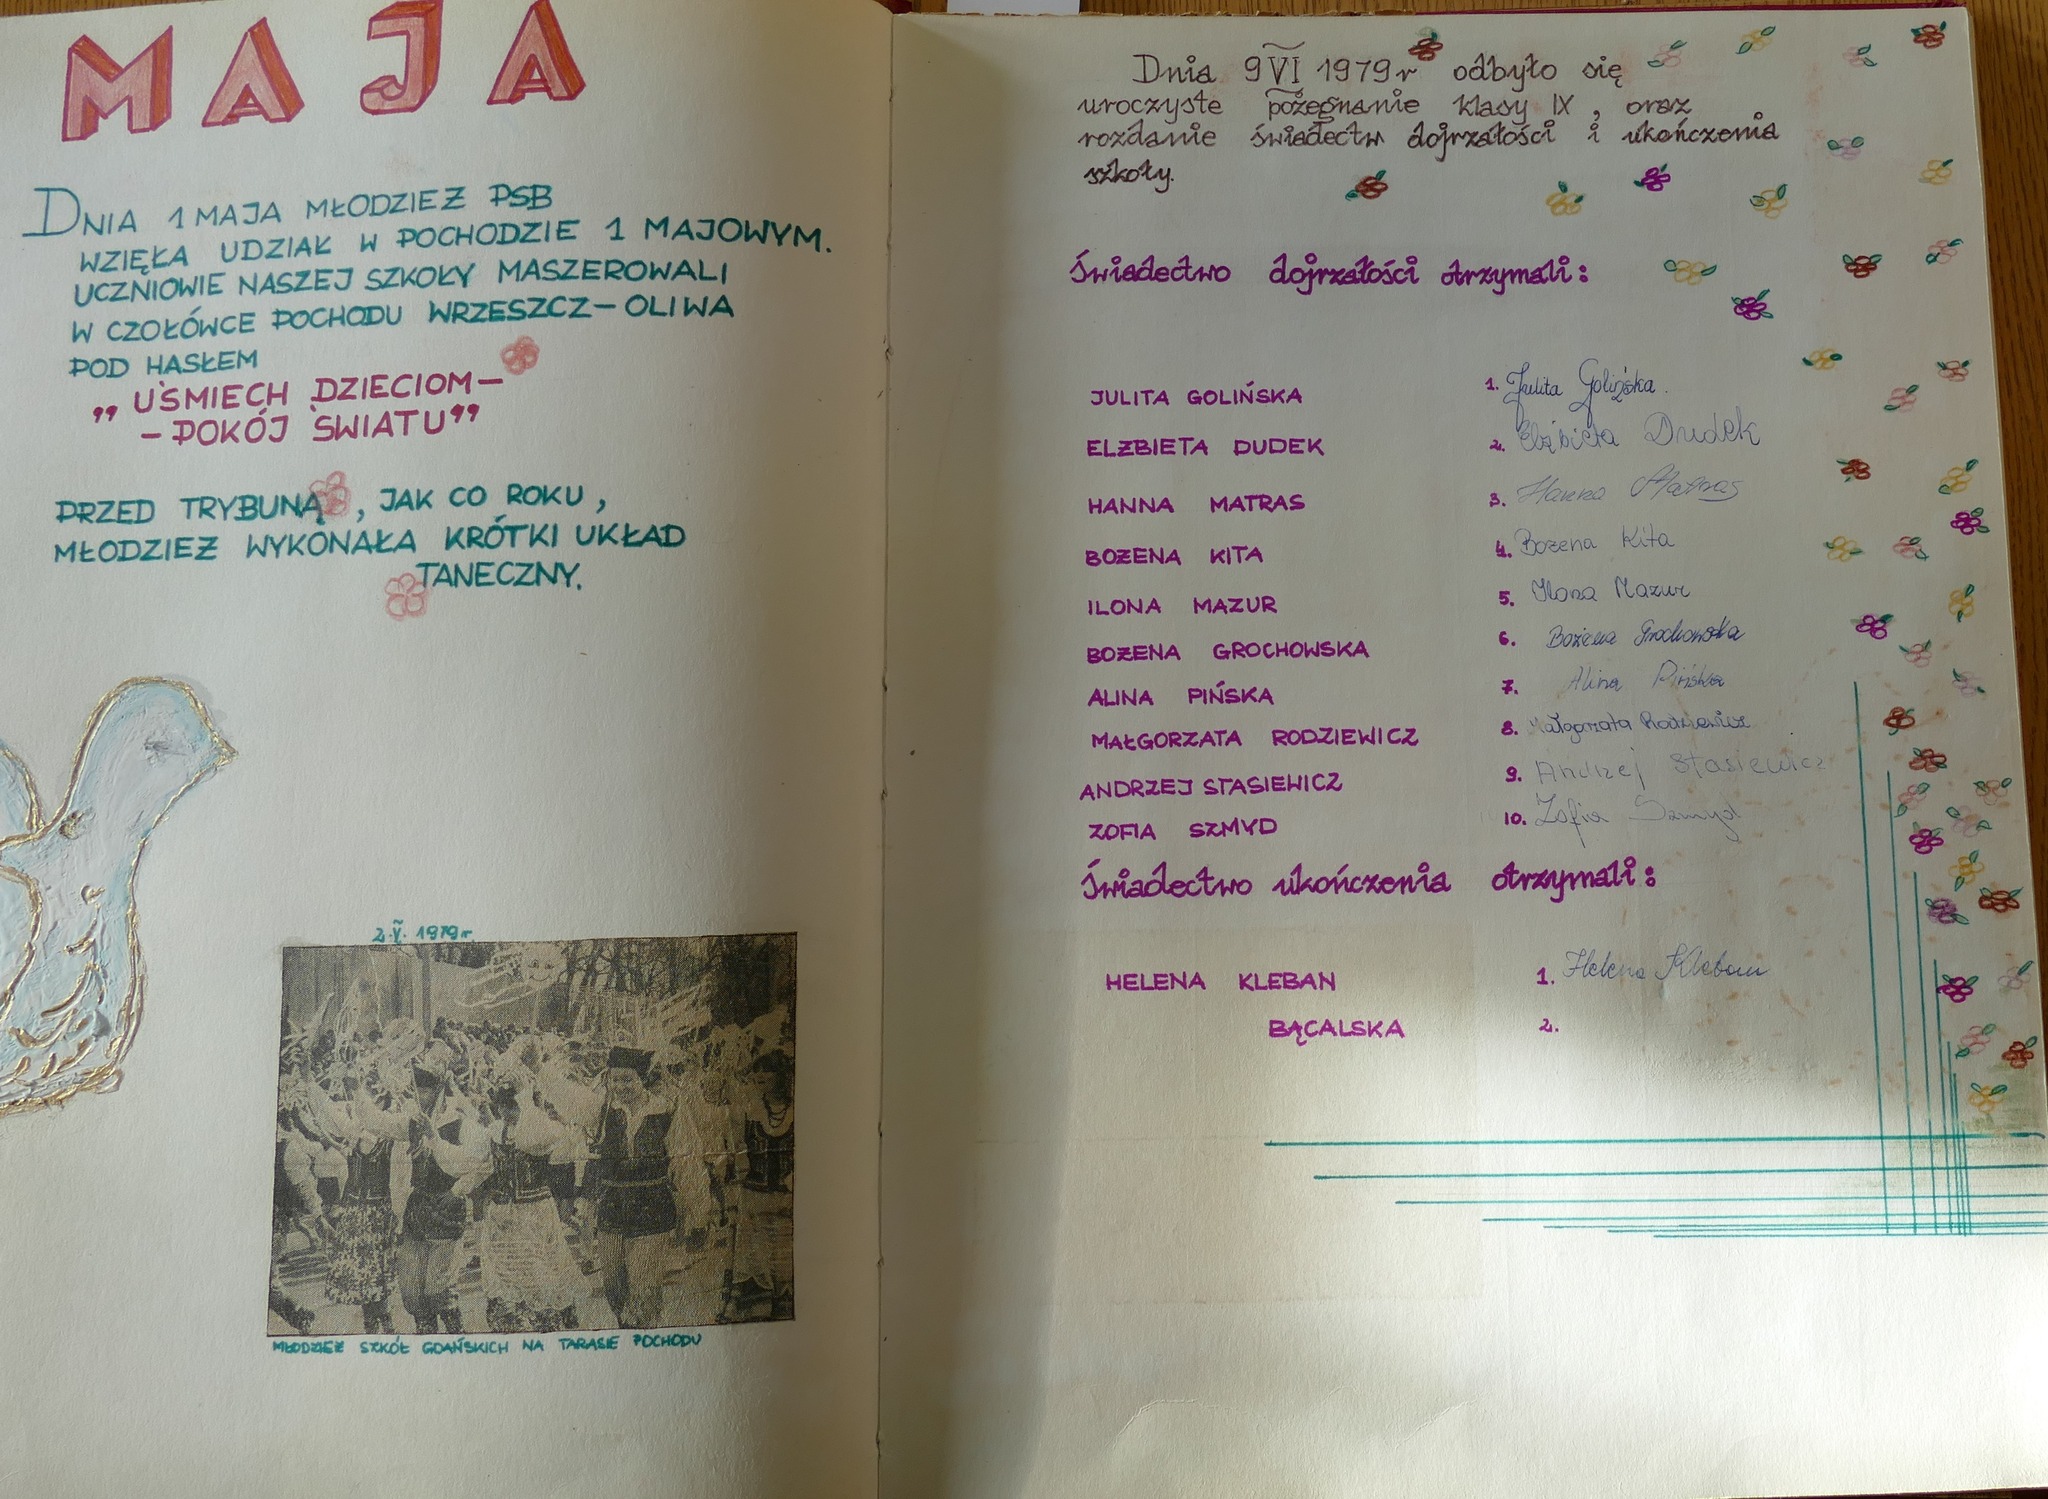 MAJA
DNIA 1 MAJA MŁODZIEŻ PSB
WZIĘŁA UDZIAŁ W POCHODZIE 1 MAJOWYM.
UCZNIOWIE NASZEJ SZKOŁY MASZEROWALI
W CZOŁÓWCE POCHODU WRZESZCZ-OLIWA
POD HASŁEM
,, UŚMIECH DZIECIOM-
-POKÓJ ŚWIATU"
PRZED TRYBUNĄ, JAK CO ROKU,
MŁODZIEŻ WYKONAŁA KRÓTKI UKŁAD
TANECZNY.
2.V.1979r.
MŁODZIEŻ SZKÓŁ GDAŃSKICH NA TARASIE POCHODU
Dnia 9 VI 1979r odbyło się
uroczyste pożegnanie klasy IX, oraz
rozdanie świadectw dojrzałości i ukończenia
szkoły.
Świadectwo dojrzałości otrzymali:
JULITA GOLIŃSKA 1. Julita Golińska.
ELŻBIETA DUDEK 2. Elżbieta Dudek
HANNA MATRAS 3. Hanna Matras
BOŻENA KITA 4. Bożena Kita
ILONA MAZUR 5. Ilona Mazur
BOŻENA GROCHOWSKA 6. Bożena Grochowska
ALINA PIŃSKA 7. Alina Pińska
MAŁGORZATA RODZIEWICZ 8. Małgorzata Rodziewicz
ANDRZEJ STASIEWICZ 9. Andrzej Stasiewicz
ZOFIA SZMYD 10. Zofia Szmyd
Świadectwo ukończenia otrzymali:
HELENA KLEBAN 1. Helena Kleban
BĄCALSKA 2.